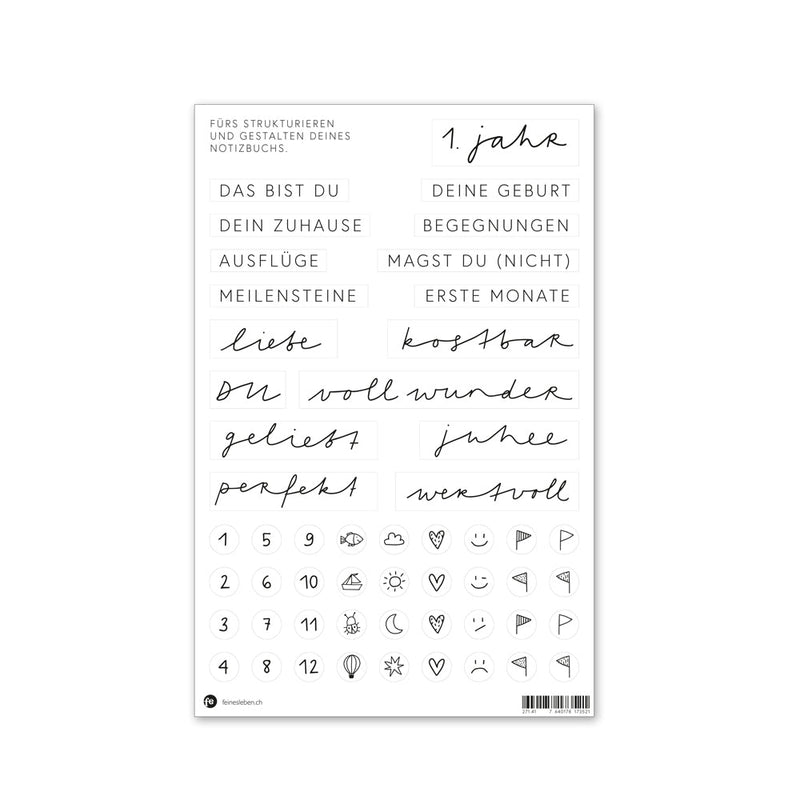 FÜRS STRUKTURIEREN
UND GESTALTEN DEINES
NOTIZBUCHS.
1. jahr
DAS BIST DU
DEINE GEBURT
DEIN ZUHAUSE
BEGEGNUNGEN
AUSFLÜGE
MAGST DU (NICHT)
MEILENSTEINE
ERSTE MONATE
liebe
kostbar
DU
voll wunder
geliebt
juhee
perfekt
wertvoll
1 5 9
2 6 10
3 7 11
4 8 12
fe feinesleben.ch
271.41 7 640178 173521